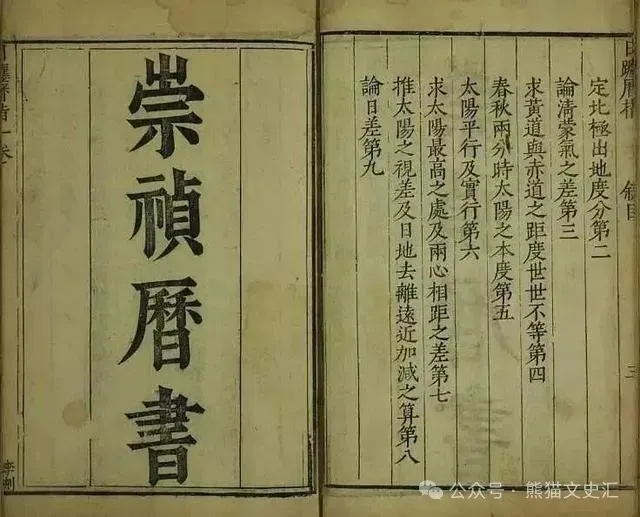 定北極出地度分第二
論清蒙氣之差第三
求黃道與赤道之距度世世不等第四
春秋兩分時太陽之本度第五
太陽平行及實行第六
求太陽最高之處及兩心相距之差第七
推太陽之視差及日地去離遠近加減之算第八
論日差第九
崇禎曆書
公众号 · 熊猫文史汇